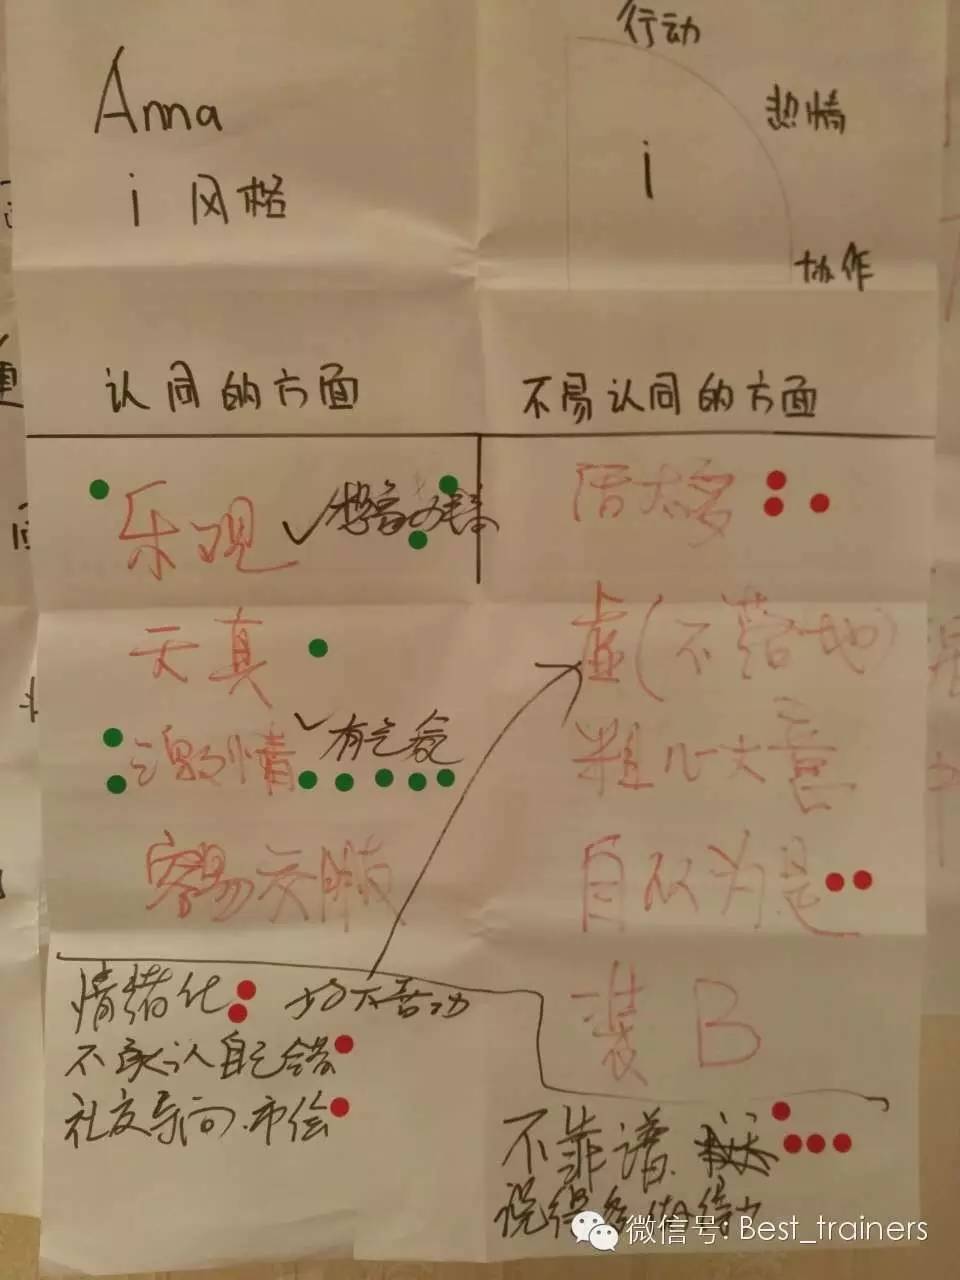 Anna
i 风格
行动
热情
i
协作
认同的方面
不易认同的方面
乐观
天真
激情 ✓有气氛
容易交朋友
话太多
虚(不落地)
粗心大意
自以为是
装B
情绪化
不承认自己错
社交导向
不靠谱
说得多做得少
微信号: Best_trainers